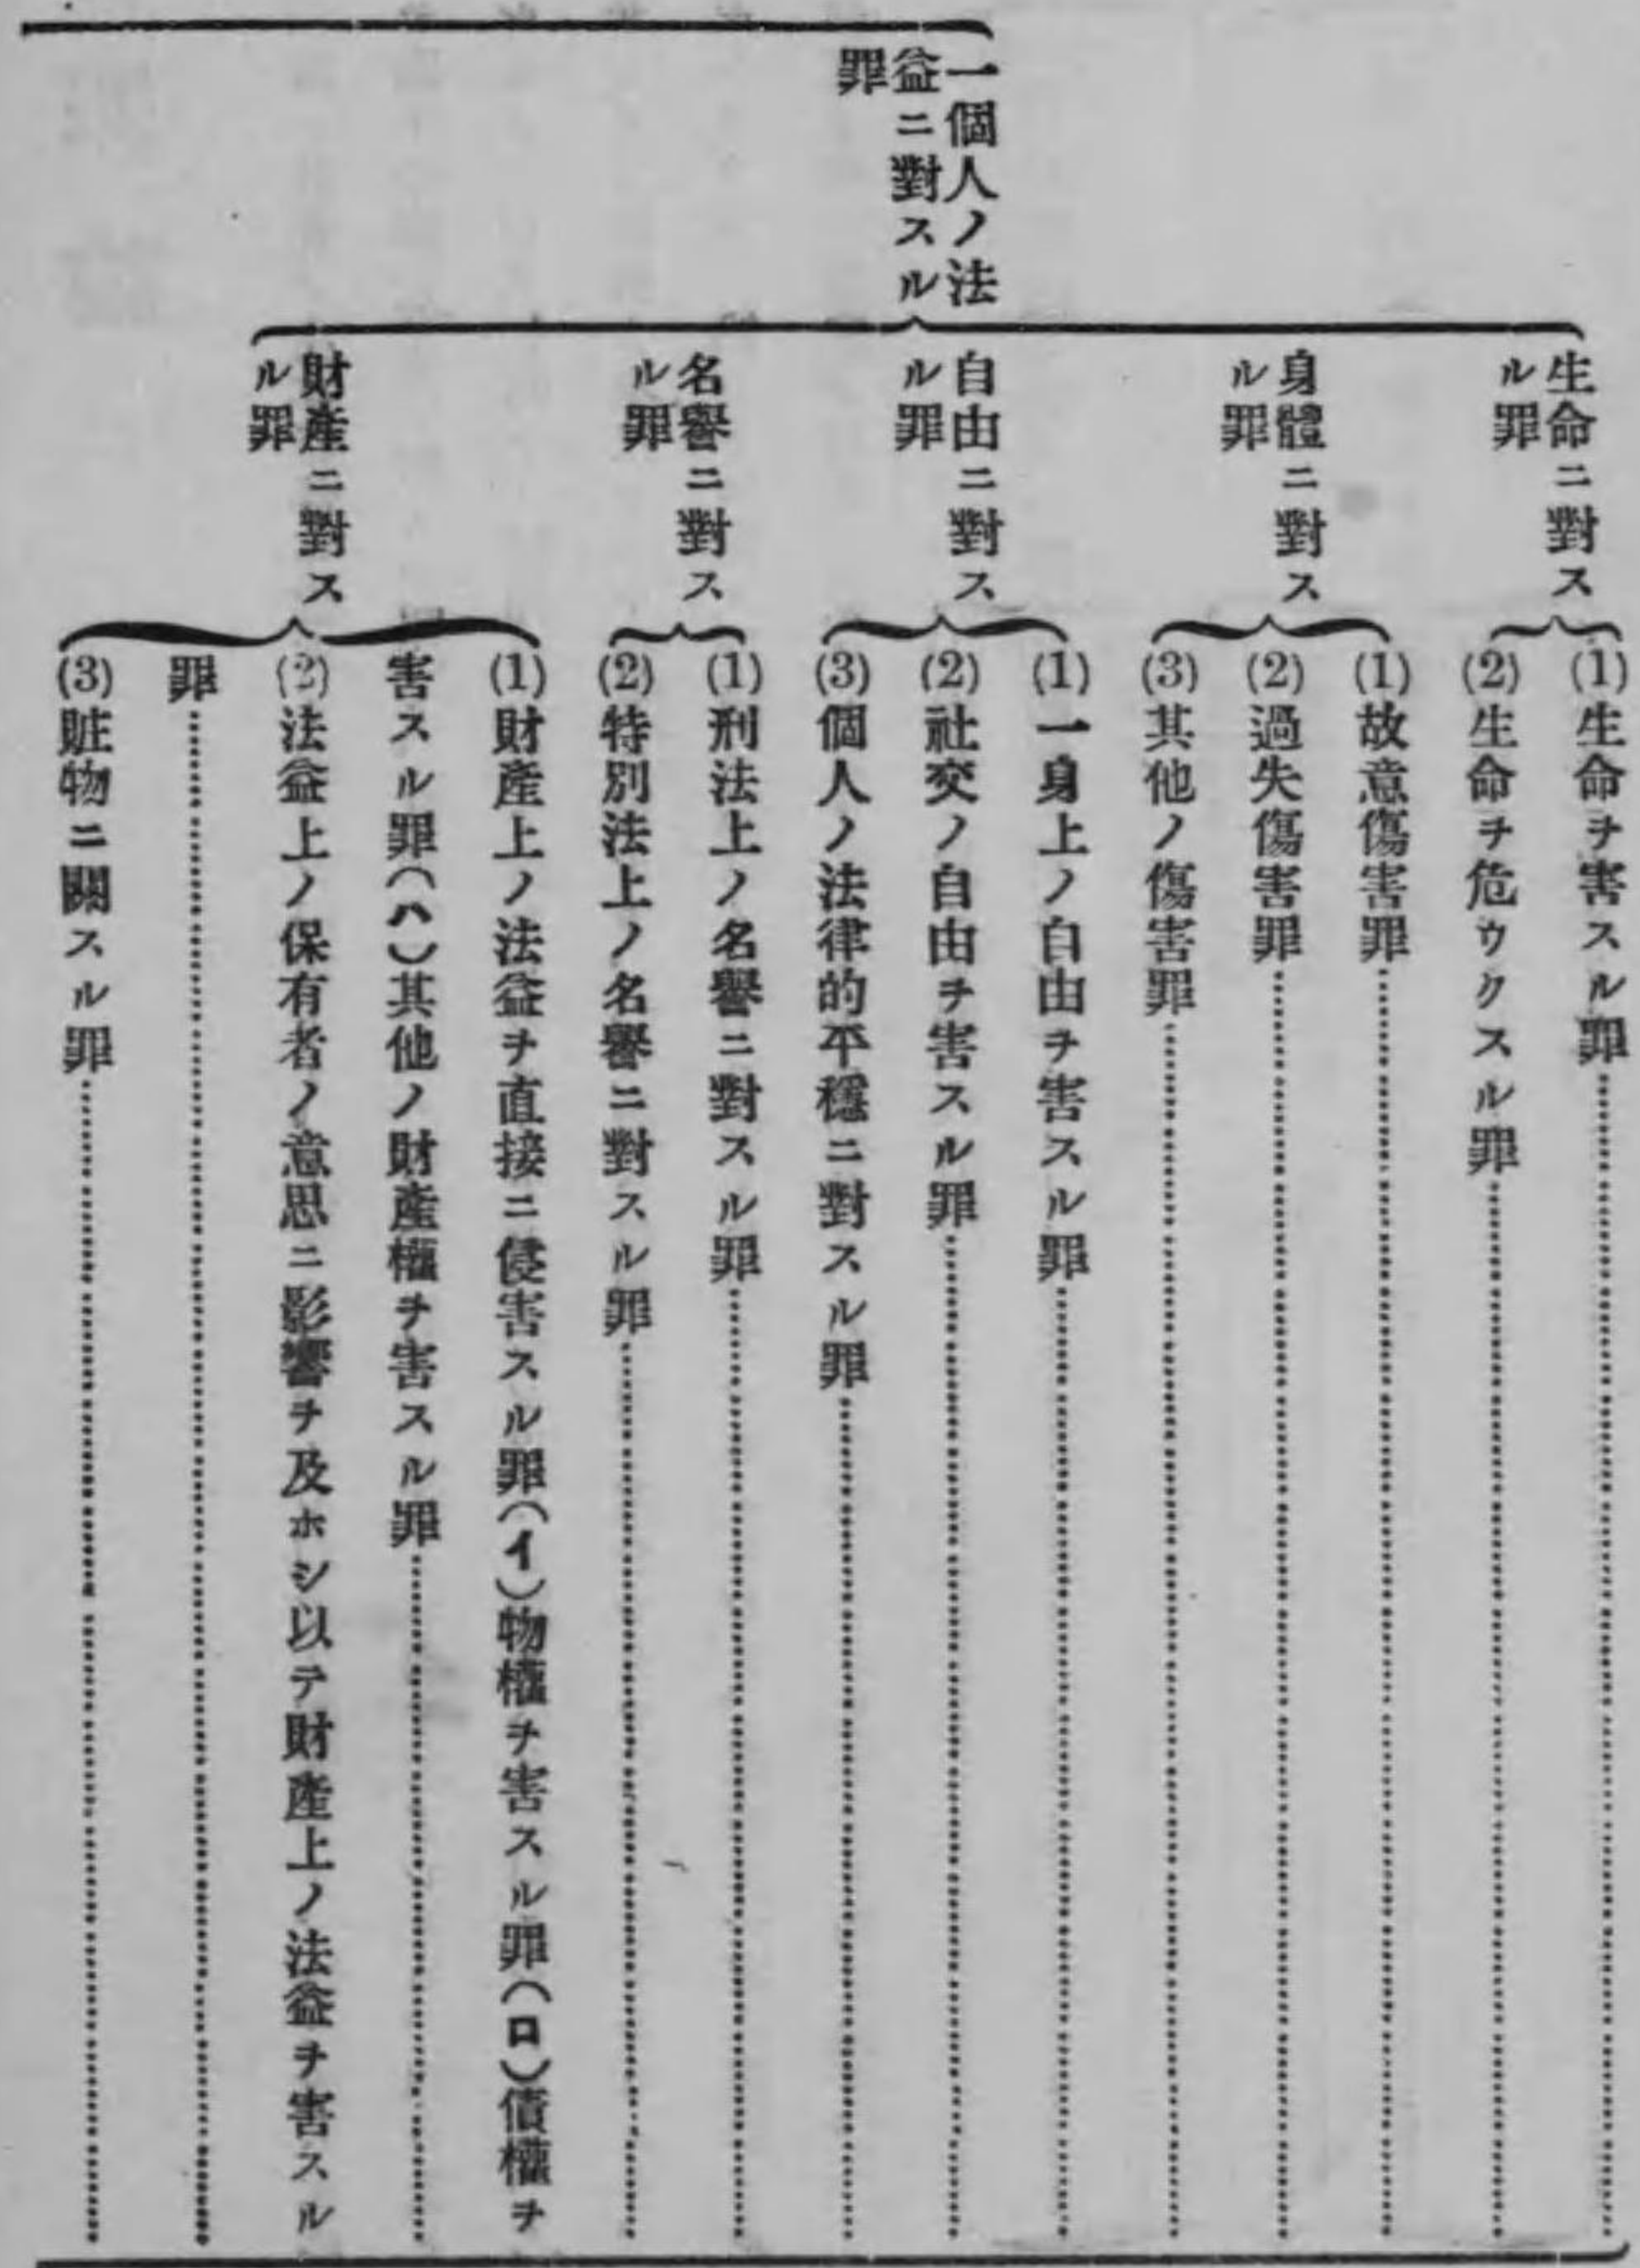 一個人ノ法
益ニ對スル
罪
生命ニ對ス
ル罪
(1)生命ヲ害スル罪
(2)生命ヲ危ウクスル罪
身體ニ對ス
ル罪
(1)故意傷害罪
(2)過失傷害罪
(3)其他ノ傷害罪
自由ニ對ス
ル罪
(1)一身上ノ自由ヲ害スル罪
(2)社交ノ自由ヲ害スル罪
(3)個人ノ法律的平穩ニ對スル罪
名譽ニ對ス
ル罪
(1)刑法上ノ名譽ニ對スル罪
(2)特別法上ノ名譽ニ對スル罪
財產ニ對ス
ル罪
(1)財產上ノ法益ヲ直接ニ侵害スル罪(イ)物權ヲ害スル罪(ロ)債權ヲ
害スル罪(ハ)其他ノ財產權ヲ害スル罪
(2)法益上ノ保有者ノ意思ニ影響ヲ及ホシ以テ財產上ノ法益ヲ害スル
罪
(3)賍物ニ關スル罪